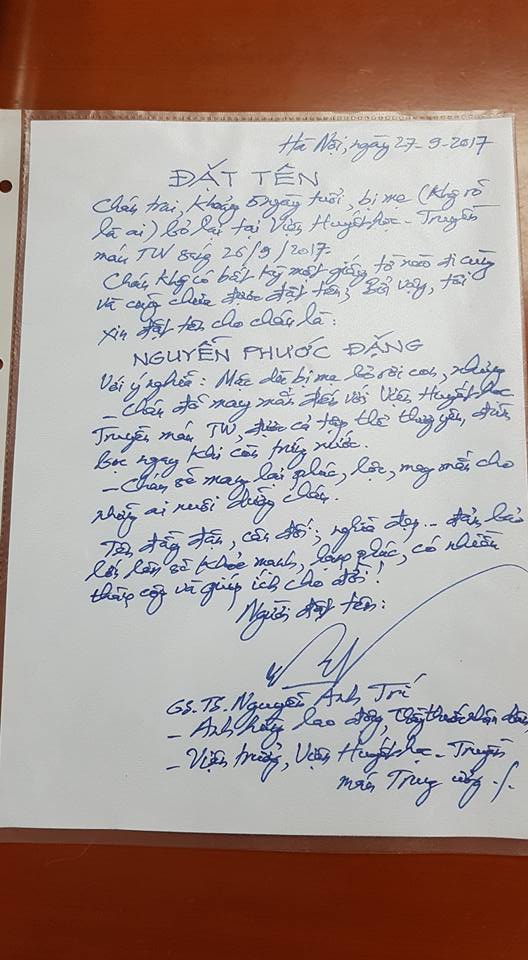 Hà Nội, ngày 27-9-2017
ĐẶT TÊN
Cháu trai, khoảng 5 ngày tuổi, bị mẹ (không rõ
là ai) bỏ lại tại Viện Huyết học - Truyền
máu TW sáng 26/9/2017.
Cháu không có bất kỳ một giấy tờ nào đi cùng
và cũng chưa được đặt tên; Bởi vậy, tôi
xin đặt tên cho cháu là:
NGUYỄN PHƯỚC ĐẶNG
Với ý nghĩa: Mặc dù bị mẹ bỏ rơi con, nhưng
- Cháu đã may mắn đến với Viện Huyết học
Truyền máu TW được cả tập thể thương yêu, đùm
bọc ngay khi còn trứng nước.
- Cháu sẽ mang lại phúc, lộc, may mắn cho
những ai nuôi dưỡng cháu.
Tên đầy đặn, cân đối; nghĩa đẹp - đảm bảo
lớn lên sẽ khỏe mạnh, hạnh phúc, có nhiều
thành công và giúp ích cho đời!
Người đặt tên:
GS.TS. Nguyễn Anh Trí
- Anh hùng lao động, Thầy thuốc nhân dân
- Viện trưởng, Viện Huyết học - Truyền
máu Trung ương ./.